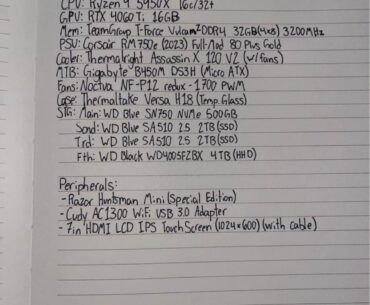 CPU: Ryzen 9 5950X 16c/32t
GPU: RTX 4060 Ti 16GB
Mem: TeamGroup T-Force Vulcan Z DDR4 32GB(4x8) 3200MHz
PSU: Corsair RM750e (2023) Full-Mod 80 Plus Gold
Cooler: Thermalright Assassin X 120 V2 (w/fans)
MTB: Gigabyte B450M DS3H (Micro ATX)
Fans: Noctua NF-P12 redux-1700 PWM
Case: Thermaltake Versa H18 (Temp. Glass)
STG: Main: WD Blue SN750 NVMe 500GB
Scnd: WD Blue SA510 2.5 2TB(SSD)
Trd: WD Blue SA510 2.5 2TB(SSD)
Fth: WD Black WD4005FZBX 4TB (HHD)
Peripherals:
- Razor Huntsman Mini (Special Edition)
- Cudy AC1300 WiFi USB 3.0 Adapter
- 7in HDMI LCD IPS Touch Screen (1024x600) (with cable)